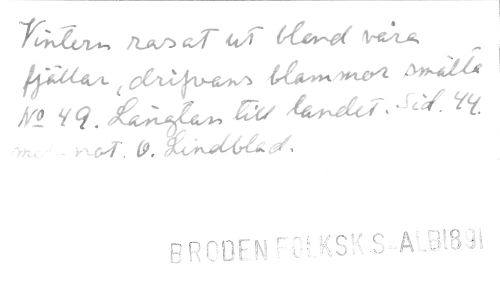 Vintern rasat ut bland våra
fjällar, drifvans blammor smälta
No 49. Längtan till landet. Sid. 44.
med not. O. Lindblad.
BRODEN FOLKSK.S-ALB1891